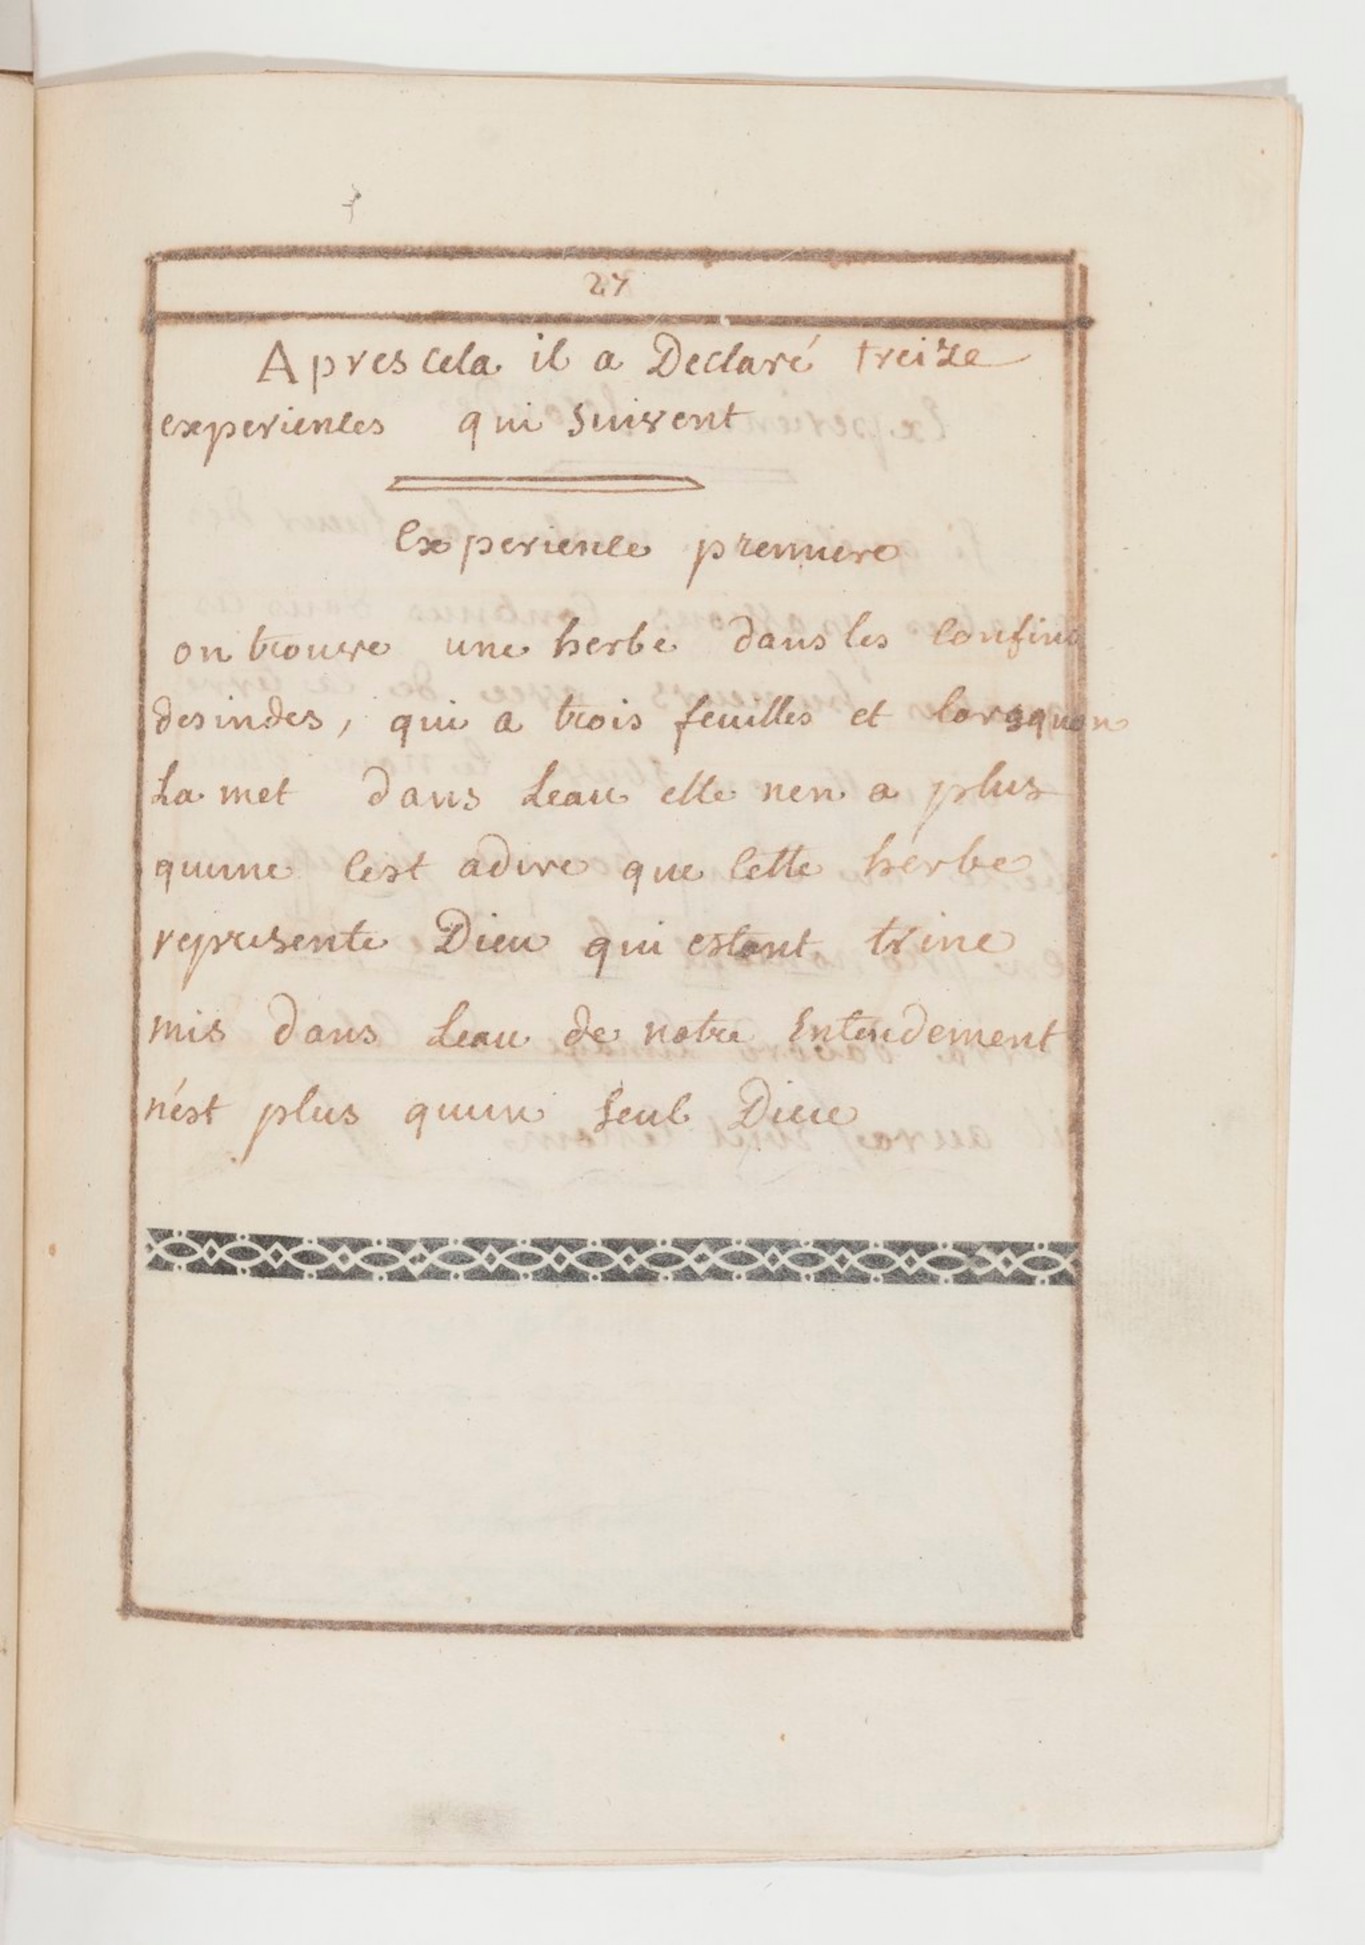 27
Apres cela il a Declaré treize
experiences qui suivent
Experience premiere
on trouve une herbe dans les confins
des indes, qui a trois feuilles et lorsquon
La met dans Leau elle nen a plus
quune cest adire que cette herbe
represente Dieu qui estant trine
mis dans Leau de notre Entendement
n'est plus quun seul Dieu